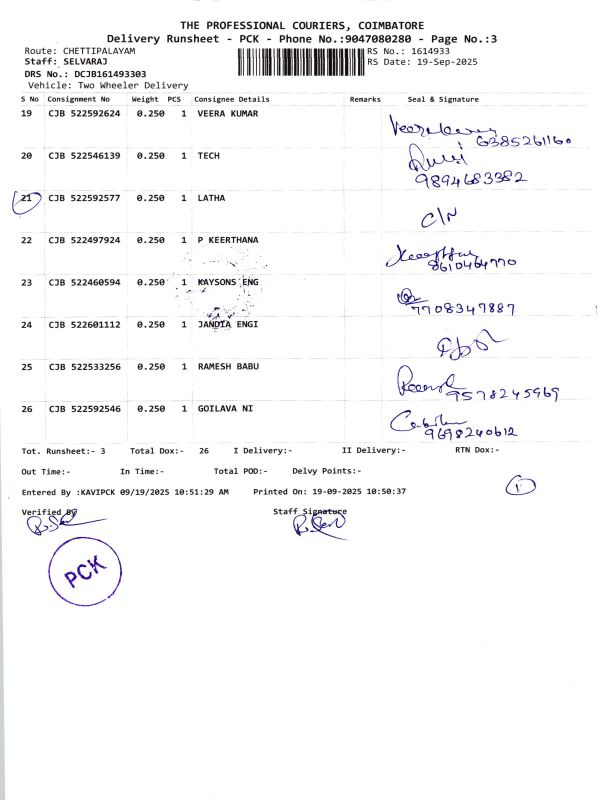 THE PROFESSIONAL COURIERS, COIMBATORE
Delivery Runsheet - PCK - Phone No.:9047080280 - Page No.:3
Route: CHETTIPALAYAM RS No.: 1614933
Staff: SELVARAJ RS Date: 19-Sep-2025
DRS No.: DCJB161493303
Vehicle: Two Wheeler Delivery
S No Consignment No Weight PCS Consignee Details Remarks Seal & Signature
19 CJB 522592624 0.250 1 VEERA KUMAR
6385261160
20 CJB 522546139 0.250 1 TECH
9894683382
21 CJB 522592577 0.250 1 LATHA
C/N
22 CJB 522497924 0.250 1 P KEERTHANA
8610464770
23 CJB 522460594 0.250 1 KAYSONS ENG
7708347887
24 CJB 522601112 0.250 1 JANDIA ENGI
25 CJB 522533256 0.250 1 RAMESH BABU
9578245969
26 CJB 522592546 0.250 1 GOILAVA NI
9698240612
Tot. Runsheet:- 3 Total Dox:- 26 I Delivery:- II Delivery:- RTN Dox:-
Out Time:- In Time:- Total POD:- Delvy Points:-
Entered By :KAVIPCK 09/19/2025 10:51:29 AM Printed On: 19-09-2025 10:50:37
Verified By Staff Signature
PCK